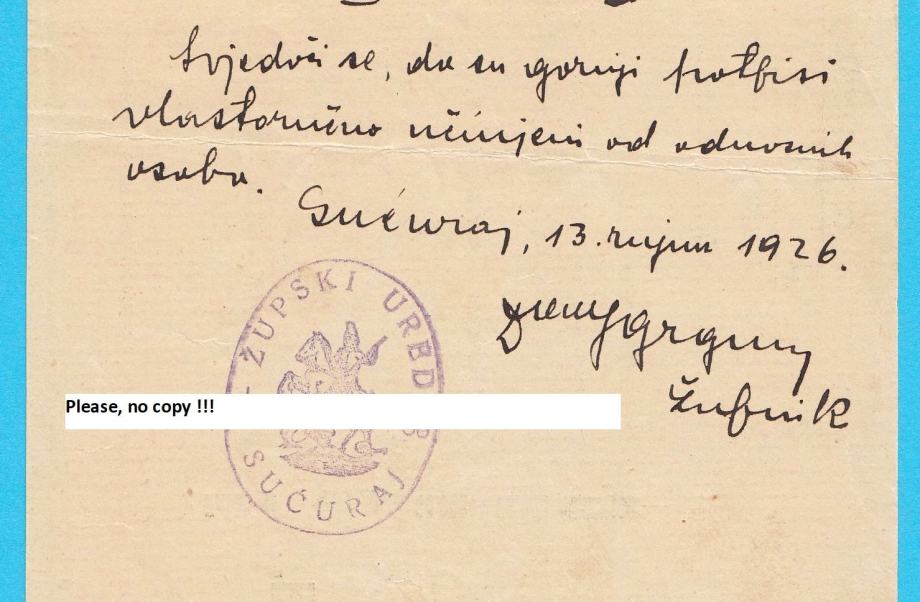 Svjedoči se, da su gornji potpisi
vlastoručno učinjeni od odnosnih
osoba.
Sućuraj, 13. rujna 1926.
Župnik
ŽUPSKI URED
SUĆURAJ
Please, no copy !!!